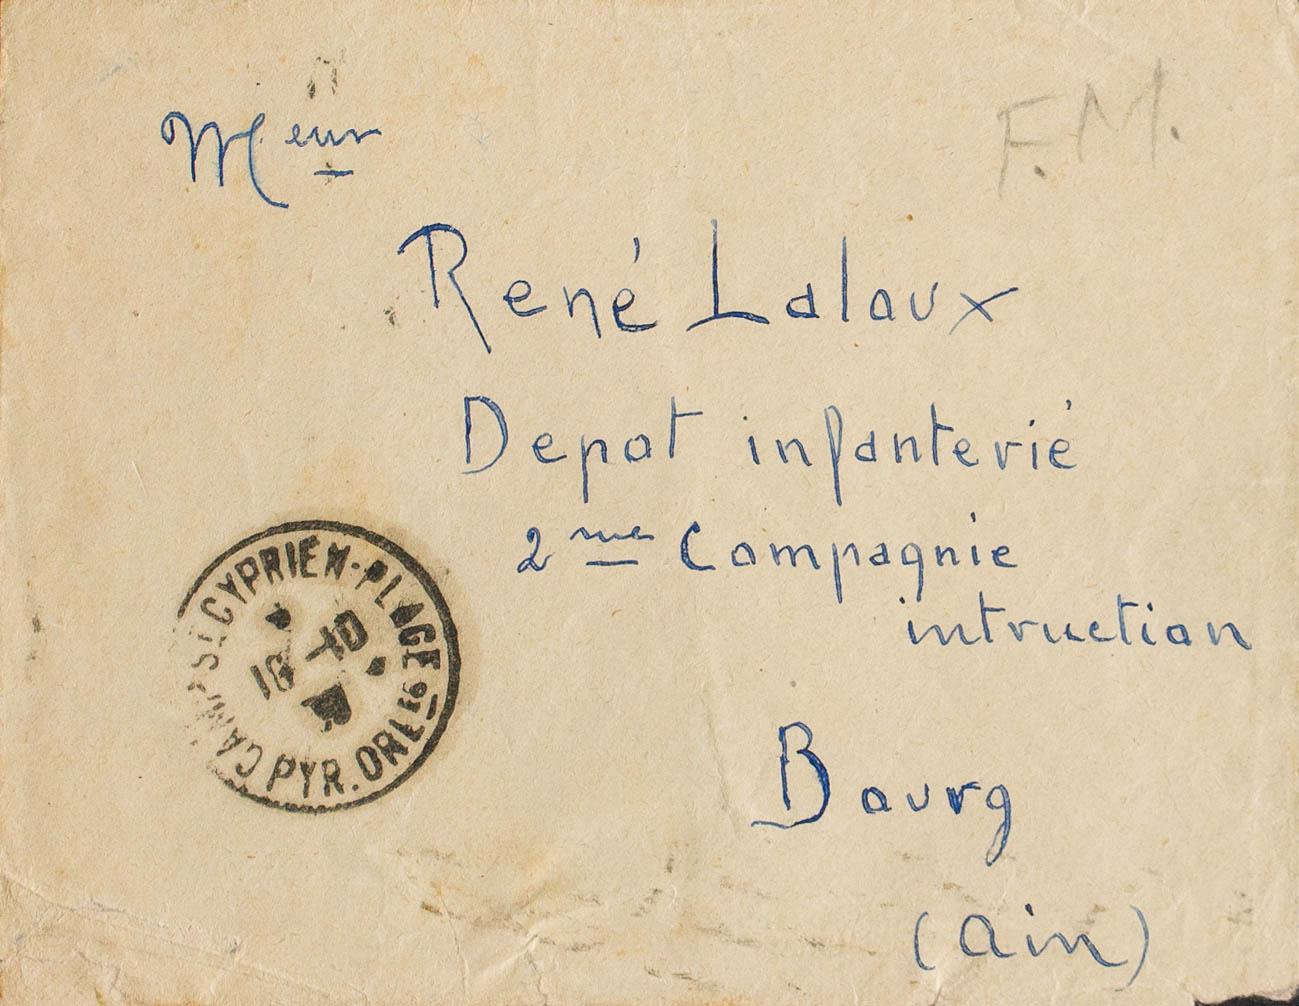 F.M.
Meur
René Lalaux
Depot infanterié
2me Compagnie
intruction
Bourg
(Ain)
CAMP ST CYPRIEN-PLAGE
18 -10
PYR. ORLES